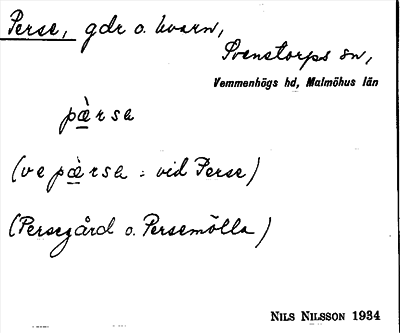 Perse, gdr o. kvarn,
Svenstorps sn,
Vemmenhögs hd, Malmöhus län
pæ̀rsa
(ve pæ̀rsa : vid Perse)
(Persegård o. Persemölla)
NILS NILSSON 1934